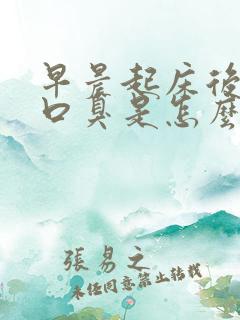 早晨起床後
口臭是怎麽
張易之
未经同意禁止转载